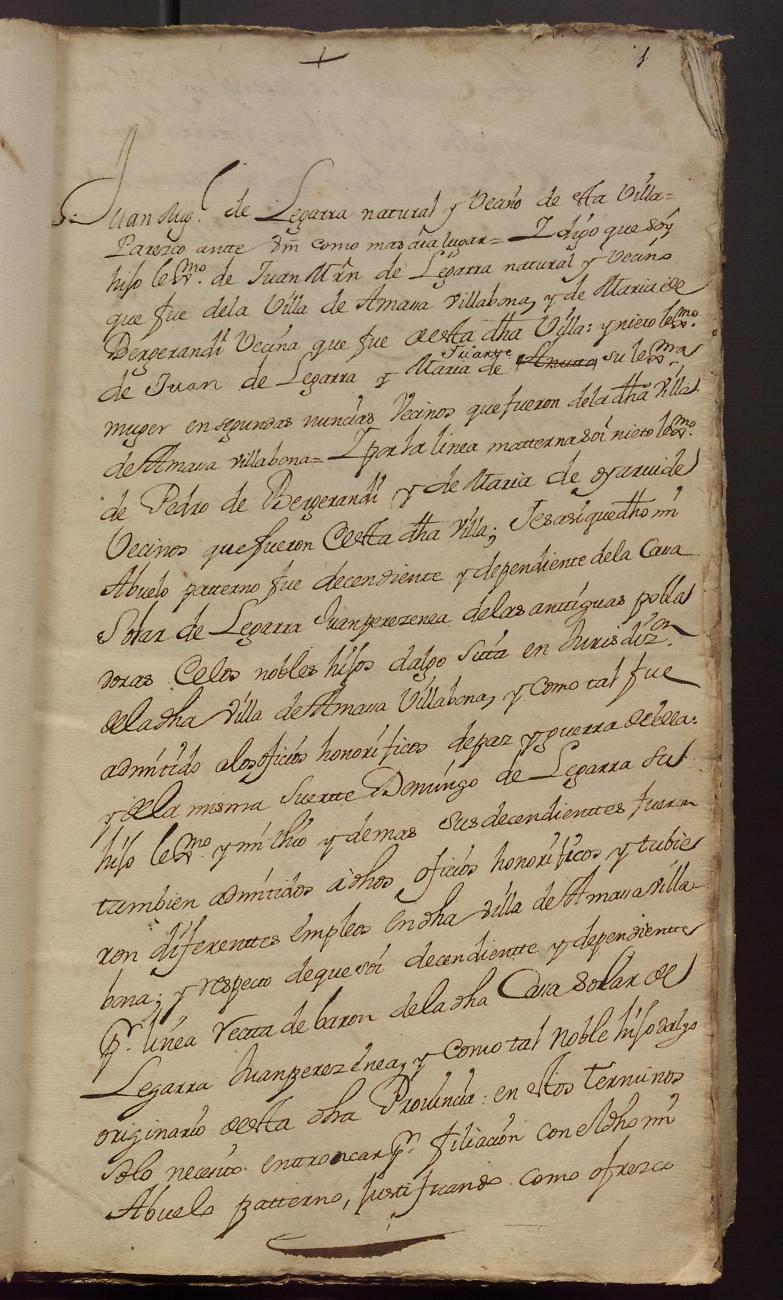 1
Juan Mig.l de Legarra natural y Vecino de esta Villa=
Parezco ante Vm como mas aia lugar= Y digo que soy
hijo lexmo. de Juan Mrn de Legarra natural y Vecino
que fue dela Villa de Amasa Villabona, y de Maria de
Bergerandi Vecina que fue de esta dha Villa: y nieto lexmo.
de Juan de Legarra y Maria de Iuarve su lexma
muger en segundas nuncias Vecinos que fueron dela dha Villa
de Amasa villabona= Y por la linea matterna soi nieto lexmo.
de Pedro de Bergerandi y de Maria de oyarvide
Vecinos que fueron de esta dha Villa; Y es asi que dho mi
Abuelo patterno fue decendiente y dependiente dela Casa
Solar de Legarra Juanperezenea delas antiguas pobla
doras de los nobles hijos dalgo sitta en Jurisdizon.
de la dha Villa de Amasa Villabona, y como tal fue
admitido alos oficios honorificos de paz y guerra de ella:
y de la misma suertte Domingo de Legarra su
hijo lexmo. y mi thio y demas sus decendienttes fueron
tambien admitidos a dhos oficios honorificos y tubie
ron diferenttes empleos en dha Villa de Amasa Villa
bona; y respecto de que soi decendientte y dependientte
pr. linea rectta de baron de la dha Casa solar de
Legarra Juanperezenea, y como tal noble hijo dalgo
originario de esta dha Provincia: en estos terminos
solo necesito entroncar pr. filiacion con el dho mi
Abuelo patterno, justificando como ofrezco